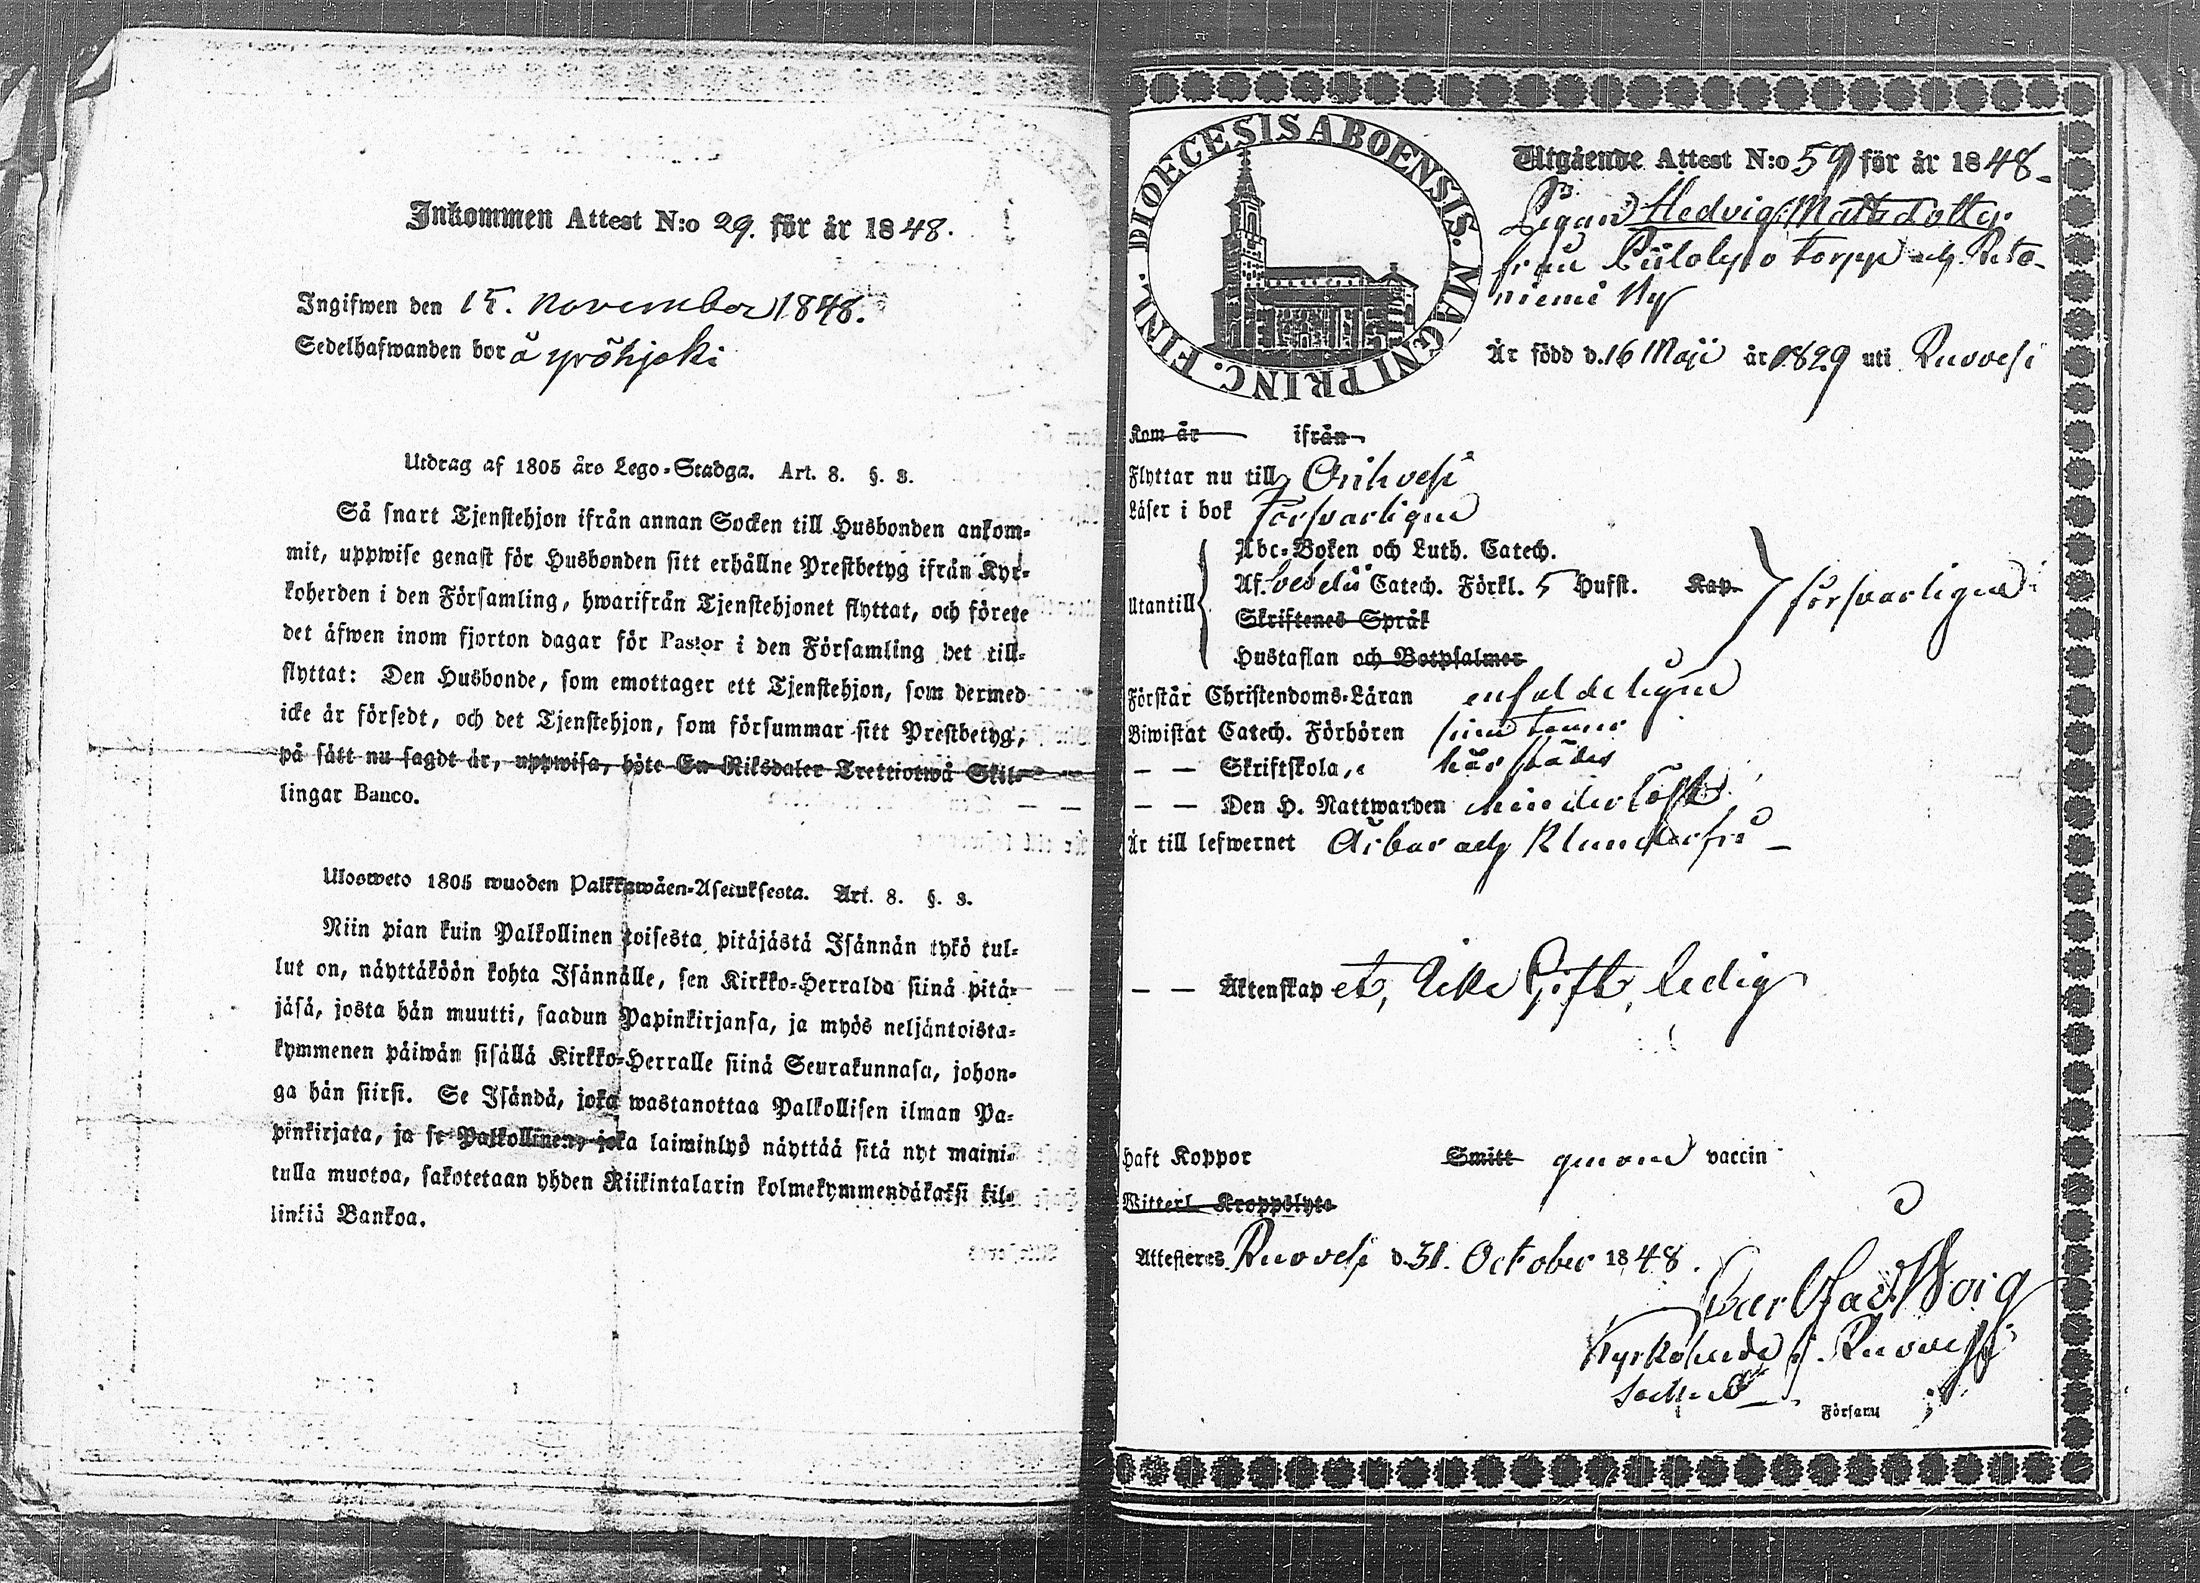 Inkommen Attest N:o 29. för år 1848.
Ingifwen den 15. November 1848.
Sedelhafwanden bor å yröhjoki
Utdrag af 1805 års Lego-Stadga. Art. 8. §. 3.
Så snart Tjenstehjon ifrån annan Socken till Husbonden ankom-
mit, uppwise genast för Husbonden sitt erhållne Prestbetyg ifrån Kyr-
koherden i den Församling, hwarifrån Tjenstehjonet flyttat, och förete
det äfwen inom fjorton dagar för Pastor i den Församling det till-
flyttat: Den Husbonde, som emottager ett Tjenstehjon, som dermed
icke är försedt, och det Tjenstehjon, som försummar sitt Prestbetyg,
på sätt nu sagdt är, uppwisa, böte En Riksdaler Trettiotwå Skil-
lingar Banco.
Ulosweto 1805 wuoden Palkkawäen-Asetuksesta. Art. 8. §. 3.
Niin pian kuin Palkollinen toisesta pitäjästä Isännän tykö tul-
lut on, näyttäköön kohta Isännälle, sen Kirkko-Herralda siinä pitä-
jäsä, josta hän muutti, saadun Papinkirjansa, ja myös neljäntoista-
kymmenen päiwän sisällä Kirkko-Herralle siinä Seurakunnasa, johon-
ga hän siirsi. Se Isändä, joka wastanottaa Palkollisen ilman Pa-
pinkirjata, ja se Palkollinen, joka laiminlyö näyttää sitä nyt maini-
tulla muotoa, sakotetaan yhden Riikintalarin kolmekymmendäkaksi kil-
linkiä Bankoa.
DIOECESIS ABOENSIS. MAGNI PRINC. FINL.
Utgående Attest N:o 59 för år 1848
Pigan Hedvig Mattsdotter
från torp
niemi
Är född d. 16 Maji år 1829 uti Ruovesi
Kom år ifrån
Flyttar nu till Orihvesi
Läser i bok Försvarligen
Utantill
Abc-Boken och Luth. Catech.
Af Svebelii Catech. Förkl. 5 Hufst. Kap. försvarligen
Skriftenes Språk
Hustaflan och Botpsalmer
Förstår Christendoms-Läran enfaldeligen
Biwistat Catech. Förhören
— — Skriftskola, härstädes
— — Den H. Nattwarden
Är till lefwernet Ärbar och
— — Äktenskap et, Icke Gift, ledig
Haft Koppor Smitt genom vaccin
Witterl. Kroppslyte
Attesteras Ruovesi d. 31. October 1848.
Kyrkoherde i Ruovesi
Socken
Försam